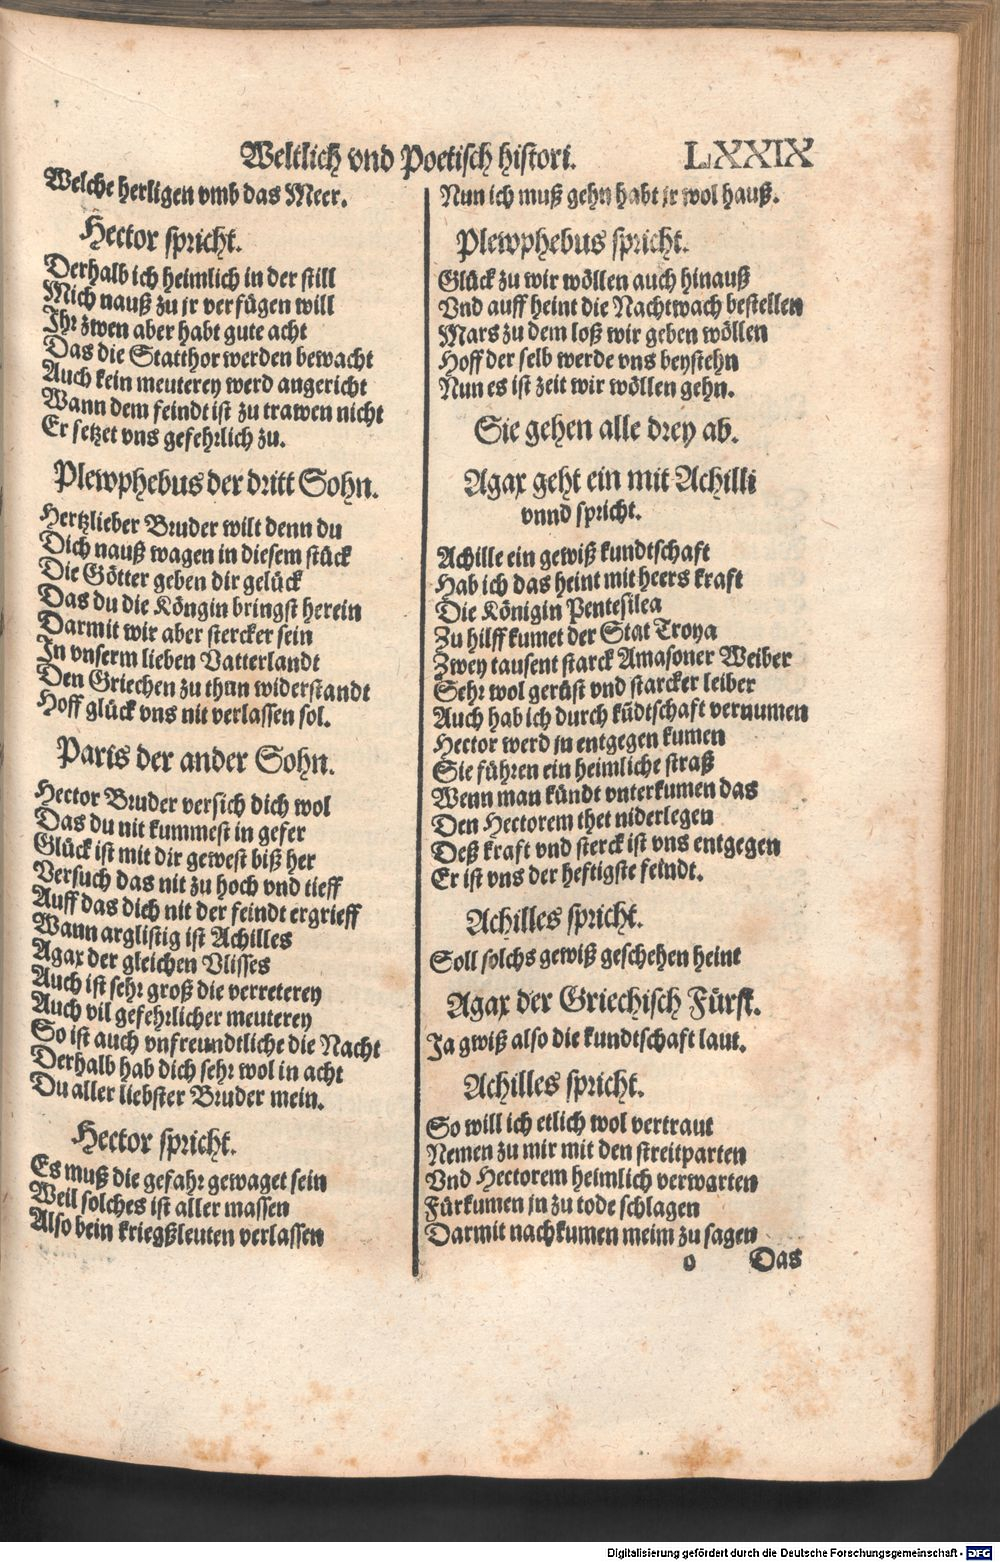 Weltlich vnd Poetisch histori. LXXIX
Welche herligen vmb das Meer.
Hector spricht.
Derhalb ich heimlich in der still
Mich nauß zu jr verfügen will
Ihr zwen aber habt gute acht
Das die Statthor werden bewacht
Auch kein meuterey werd angericht
Wann dem feindt ist zu trawen nicht
Er setzet vns gefehrlich zu.
Plewphebus der dritt Sohn.
Hertzlieber Bruder wilt denn du
Dich nauß wagen in diesem stück
Die Götter geben dir gelück
Das du die Köngin bringst herein
Darmit wir aber stercker sein
In vnserm lieben Vatterlandt
Den Griechen zu thun widerstandt
Hoff glück vns nit verlassen sol.
Paris der ander Sohn.
Hector Bruder versich dich wol
Das du nit kummest in gefer
Glück ist mit dir gewest biß her
Versuch das nit zu hoch vnd tieff
Auff das dich nit der feindt ergrieff
Wann arglistig ist Achilles
Agax der gleichen Vlisses
Auch ist sehr groß die verreterey
Auch vil gefehrlicher meuterey
So ist auch vnfreundtliche die Nacht
Derhalb hab dich sehr wol in acht
Du aller liebster Bruder mein.
Hector spricht.
Es muß die gefahr gewaget sein
Weil solches ist aller massen
Also bein kriegßleuten verlassen
Nun ich muß gehn habt jr wol hauß.
Plewphebus spricht.
Glück zu wir wöllen auch hinauß
Vnd auff heint die Nachtwach bestellen
Mars zu dem loß wir geben wöllen
Hoff der selb werde vns beystehn
Nun es ist zeit wir wöllen gehn.
Sie gehen alle drey ab.
Agax geht ein mit Achilli
vnnd spricht.
Achille ein gewiß kundtschaft
Hab ich das heint mit heers kraft
Die Königin Pentesilea
Zu hilff kumet der Stat Troya
Zwey tausent starck Amasoner Weiber
Sehr wol gerüst vnd starcker leiber
Auch hab ich durch kũdtschaft vernumen
Hector werd jn entgegen kumen
Sie führen ein heimliche straß
Wenn man kündt vnterkumen das
Den Hectorem thet niderlegen
Deß kraft vnd sterck ist vns entgegen
Er ist vns der heftigste feindt.
Achilles spricht.
Soll solchs gewiß geschehen heint
Agax der Griechisch Fürst.
Ja gwiß also die kundtschaft laut.
Achilles spricht.
So will ich etlich wol vertraut
Nemen zu mir mit den streitparten
Vnd Hectorem heimlich verwarten
Fürkumen jn zu tode schlagen
Darmit nachkumen meim zu sagen
o Das
Digitalisierung gefördert durch die Deutsche Forschungsgemeinschaft - DFG